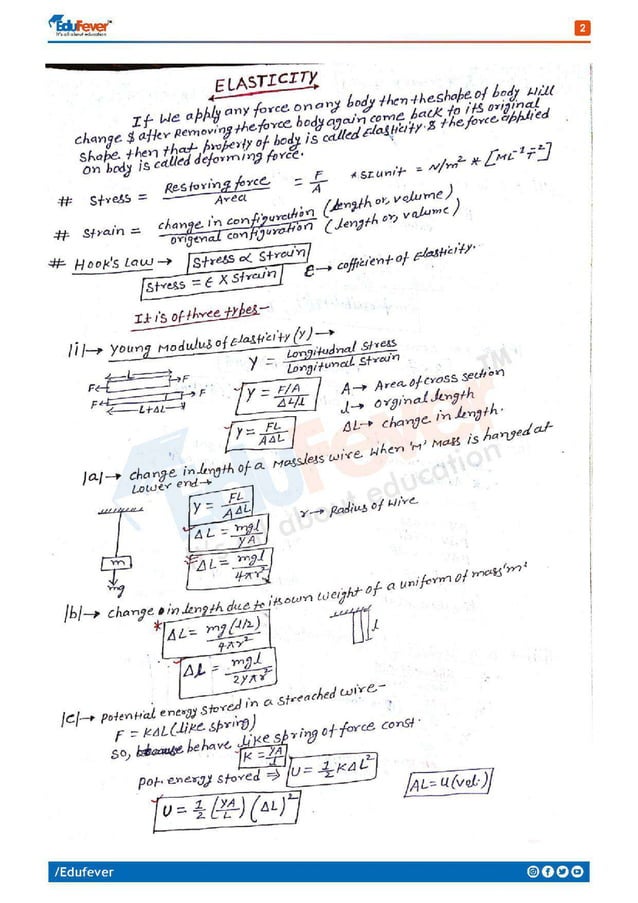 EduFever™
It's all about education
2
ELASTICITY
If we apply any force on any body then the shape of body will
change & after Removing the force body again come back to its original
shape then that property of body is called Elasticity. & the force applied
on body is called deforming force.
# Stress = Restoring force / Area = F/A * SI unit = N/m² * [ML⁻¹T⁻²]
# Strain = change in configuration (length or, volume) / origenal configuration (length or, volume)
# Hook's Law → Stress ∝ Strain
Stress = ϵ × Strain ϵ → cofficient of Elasticity.
It is of three types -
|i|→ Young Modulus of Elasticity (Y) →
Y = Longitudnal Stress / Longitunal Strain
L
F F
F F
L+ΔL
Y = F/A / ΔL/l
A → Area of cross section
l → Orginal length
ΔL → change in length.
Y = FL / AΔL
|a|→ change in length of a Massless wire when 'M' Mass is hanged at
Lower end →
Y = FL / AΔL
r → Radius of wire
ΔL = mgl / YA
ΔL = mgl / 4πr²
m
mg
|b|→ change in length due to its own weight of a uniform of mass 'm'
* ΔL = mg(l/2) / 4πr²
l
Δl = mgl / 2Yπr²
|c|→ Potential energy stored in a streached wire -
F = KΔL (like spring)
So, behave like spring of force const.
K = YA / l
pot. energy stored ⇒ U = ½ KΔL²
AL = U (vol.)
U = ½ (YA/L) (ΔL)²
EduFever™
It's all about education
/Edufever